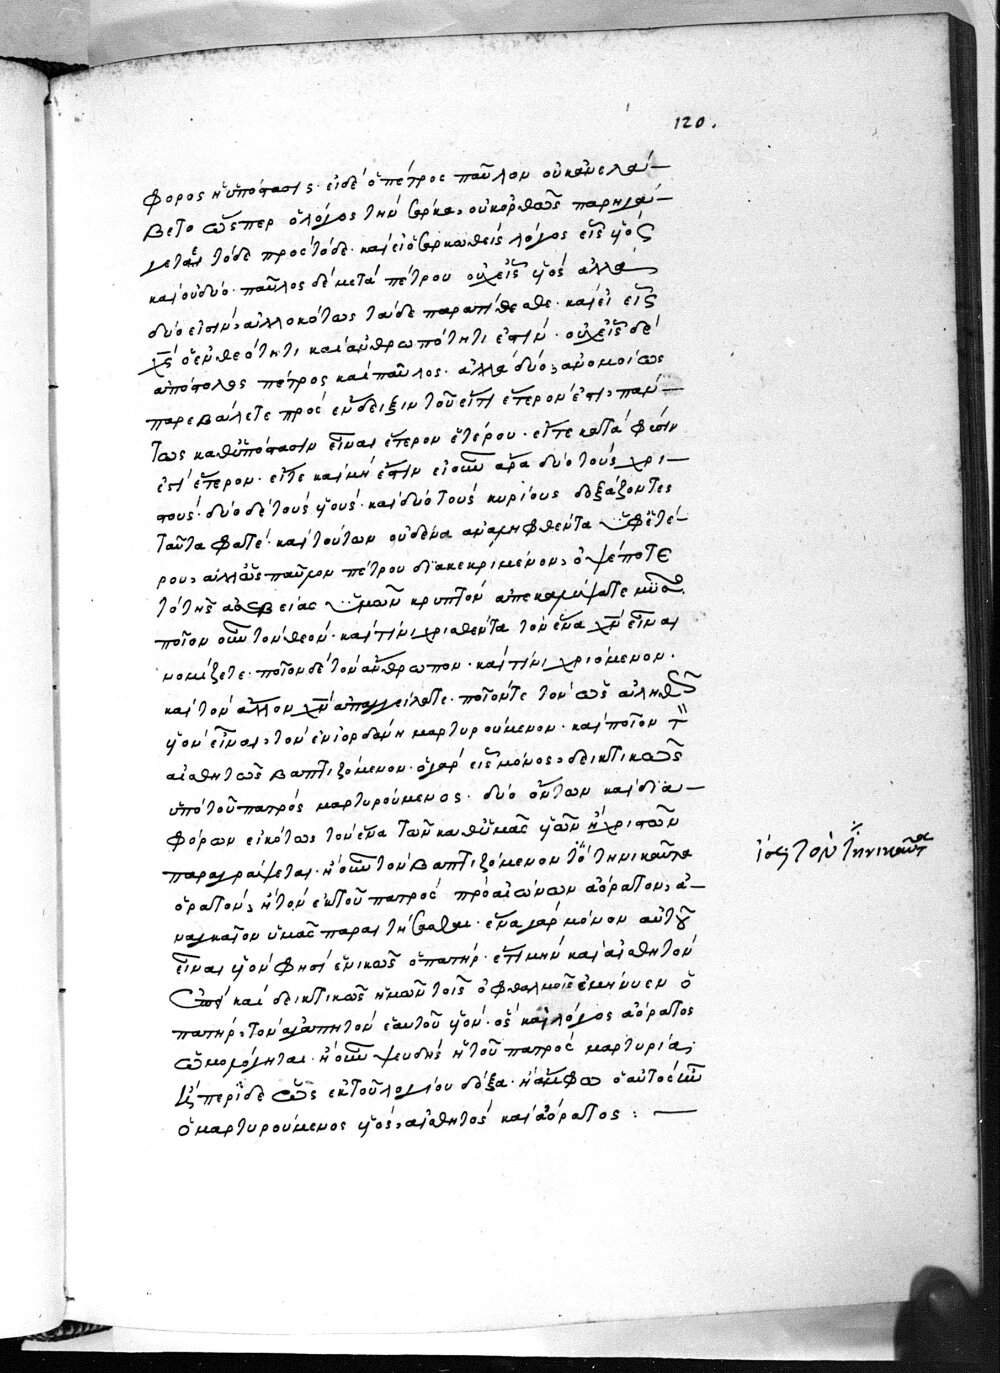 120.
φορος ἡ ὑπόστασις· εἰ δὲ ὁ πέτρος παῦλον οὐκ ἀνελάμ-
βετο ὥσπερ ὁ λόγος τὴν σάρκα, οὐκ ὀρθῶς παρηγά-
γετε τόδε πρὸς τόδε· καὶ εἰ ὁ σαρκωθεὶς λόγος εἷς υἱός
καὶ οὐ δύο· παῦλος δὲ μετὰ πέτρου οὐχ εἷς υἱός ἀλλὰ
δύο εἰσὶν, ἀλλοκότως ταῦδε παρατίθεσθε· καὶ εἰ εἷς
χς ὁ ἐν θεότητι καὶ ἀνθρωπότητι ἐστίν· οὐχ εἷς δὲ
ἀπόστολος πέτρος καὶ παῦλος· ἀλλὰ δύο, ἀνομοίως
παρεβάλετε πρὸς ἔνδειξιν τοῦ εἴ τι ἕτερον ἐστι, πάν-
τως καθ' ὑπόστασιν εἶναι ἕτερον ἑτέρου· εἴτε κατὰ φύσιν
ἐστὶ ἕτερον· εἴτε καὶ μή ἐστιν εἰ οὖν ἄρα δύο τοὺς χρι-
στούς· δύο δὲ τοὺς υἱούς· καὶ δύο τοὺς κυρίους δοξάζοντες
ταῦτα φατέ· καὶ τούτων οὐδένα ἀναληφθέντα ὑφ' ἑτέ-
ρου, ἀλλ' ὡς παῦλον πέτρου διακεκριμένον, ὀψέποτε
τὸ τῆς ἀσεβείας ὑμῶν κρυπτὸν ἀπεκαλύψατε
ποῖον οὖν τὸν θεόν· καὶ τίνι χρισθέντα τὸν ἕνα χν εἶναι
νομίζετε· ποῖον δὲ τὸν ἄνθρωπον· καὶ τίνι χριόμενον·
καὶ τὸν ἄλλον χν ἀπαγγείλατε· ποῖόν τε τὸν ὡς ἀληθῶς
υἱὸν εἶναι, τὸν ἐν ἰορδάνῃ μαρτυρούμενον· καὶ ποῖον τὸν
αἰσθητῶς βαπτιζόμενον· ὁ γὰρ εἷς μόνος, δεικτικῶς
ὑπὸ τοῦ πατρὸς μαρτυρούμενος· δύο ὄντων καὶ δια-
φόρων εἰκότως τὸν ἕνα τῶν καθ' ὑμᾶς υἱῶν ἢ χριστῶν
παραγράψεται· ἢ οὖν τὸν βαπτιζόμενον τὸ τηνικαῦτα
ὁρατόν, ἢ τὸν ἐκ τοῦ πατρὸς πρὸ αἰώνων ἀόρατον, ἀ-
ναγκαῖον ὑμᾶς παραιτήσασθαι· ἕνα γὰρ μόνον αὐτοῦ
εἶναι υἱὸν φησὶ ἑνικῶς ὁ πατήρ· ἔτι μὴν καὶ αἰσθητὸν
καὶ δεικτικῶς ἡμῶν τοῖς ὀφθαλμοῖς ἐμήνυεν ὁ
πατήρ, τὸν ἀγαπητὸν ἑαυτοῦ υἱόν· ὃς καὶ λόγος ἀόρατος
ὡμολόγηται· ἢ οὖν ψευδὴς ἡ τοῦ πατρὸς μαρτυρία,
ὡς ἐκ τοῦ λογίου δόξα· ἢ ἄμφω ὁ αὐτός ἐστιν
ὁ μαρτυρούμενος υἱός, αἰσθητός καὶ ἀόρατος : —
ἴσως τὸν τηνικαῦτα